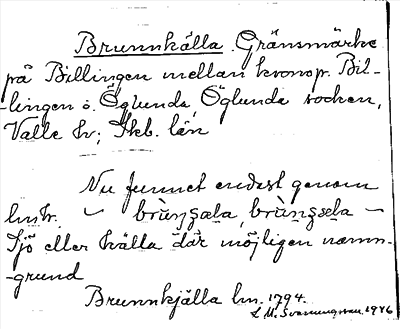 Brunnkälla Gränsmärke
på Billingen mellan kronop. Bil-
-lingen o. Öglunda, Öglunda socken,
Valle hr; Skb. län
Nu funnet endast genom
lmhr. brùŋsala, brùŋsela –
Sjö eller källa där möjligen namn-
-grund
Brunnkjälla lm. 1794.
L. M. Svanungsson. 1946